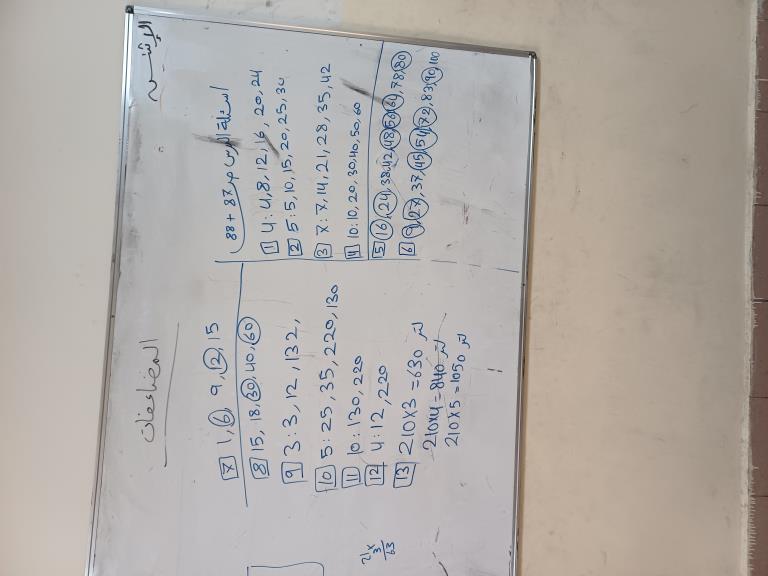 الإثنين
المضاعفات
اسئلة الدرس ص 87 + 88
1 4 : 4, 8, 12, 16, 20, 24
2 5 : 5, 10, 15, 20, 25, 30
3 7 : 7, 14, 21, 28, 35, 42
4 10 : 10, 20, 30, 40, 50, 60
5 16, 24, 38, 42, 48, 56, 61, 78, 80
6 9, 27, 37, 45, 54, 72, 83, 90, 100
7 1, 6, 9, 12, 15
8 15, 18, 30, 40, 60
9 3 : 3, 12, 132,
10 5 : 25, 35, 220, 130
11 10 : 130, 220
12 4 : 12, 220
13 210 × 3 = 630 لتر
210 × 4 = 840 لتر
210 × 5 = 1050 لتر
21 ×
3
63